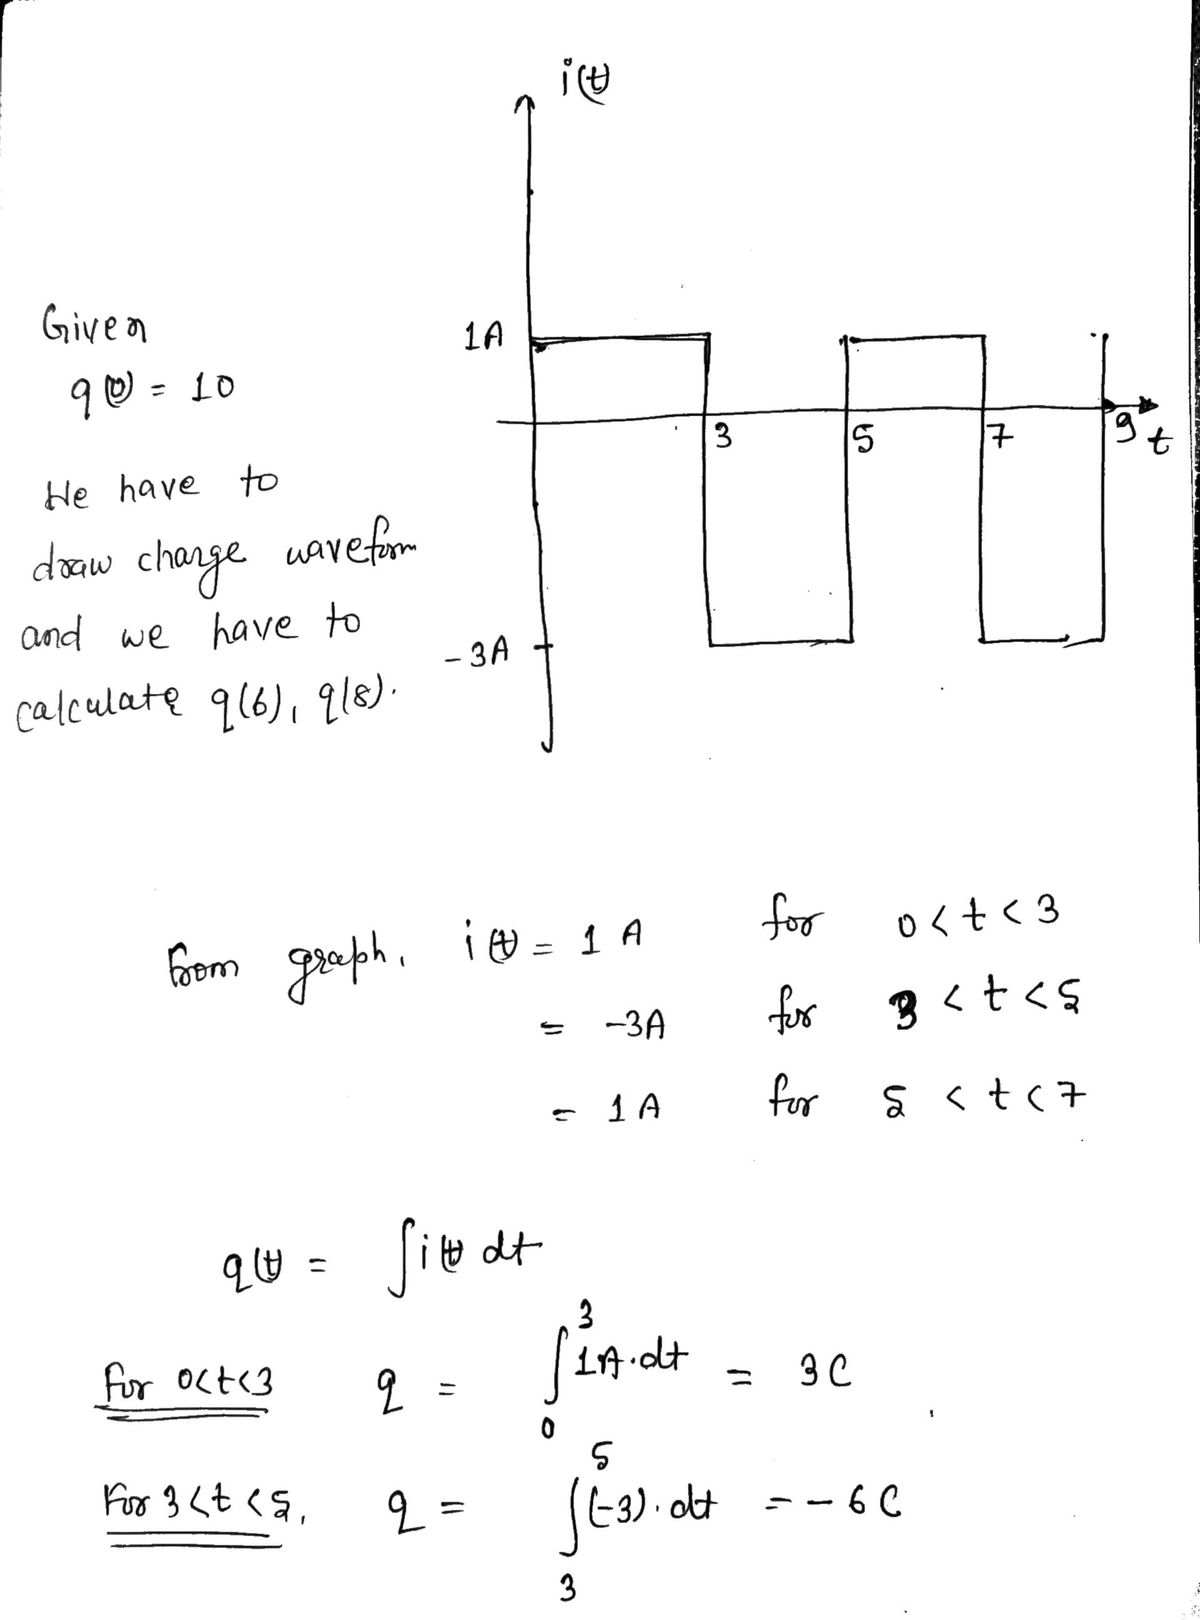 i(t)
1A
-3A
3
5
7
9
t
Given
q(0) = 10
We have to
draw charge waveform
and we have to
calculate q(6), q(8).
from graph, i(t) = 1 A for 0 < t < 3
= -3A for 3 < t < 5
= 1 A for 5 < t < 7
q(t) = ∫i(t) dt
for 0<t<3 q = ∫₀³ 1A.dt = 3C
For 3<t<5, q = ∫₃⁵ (-3).dt = -6C